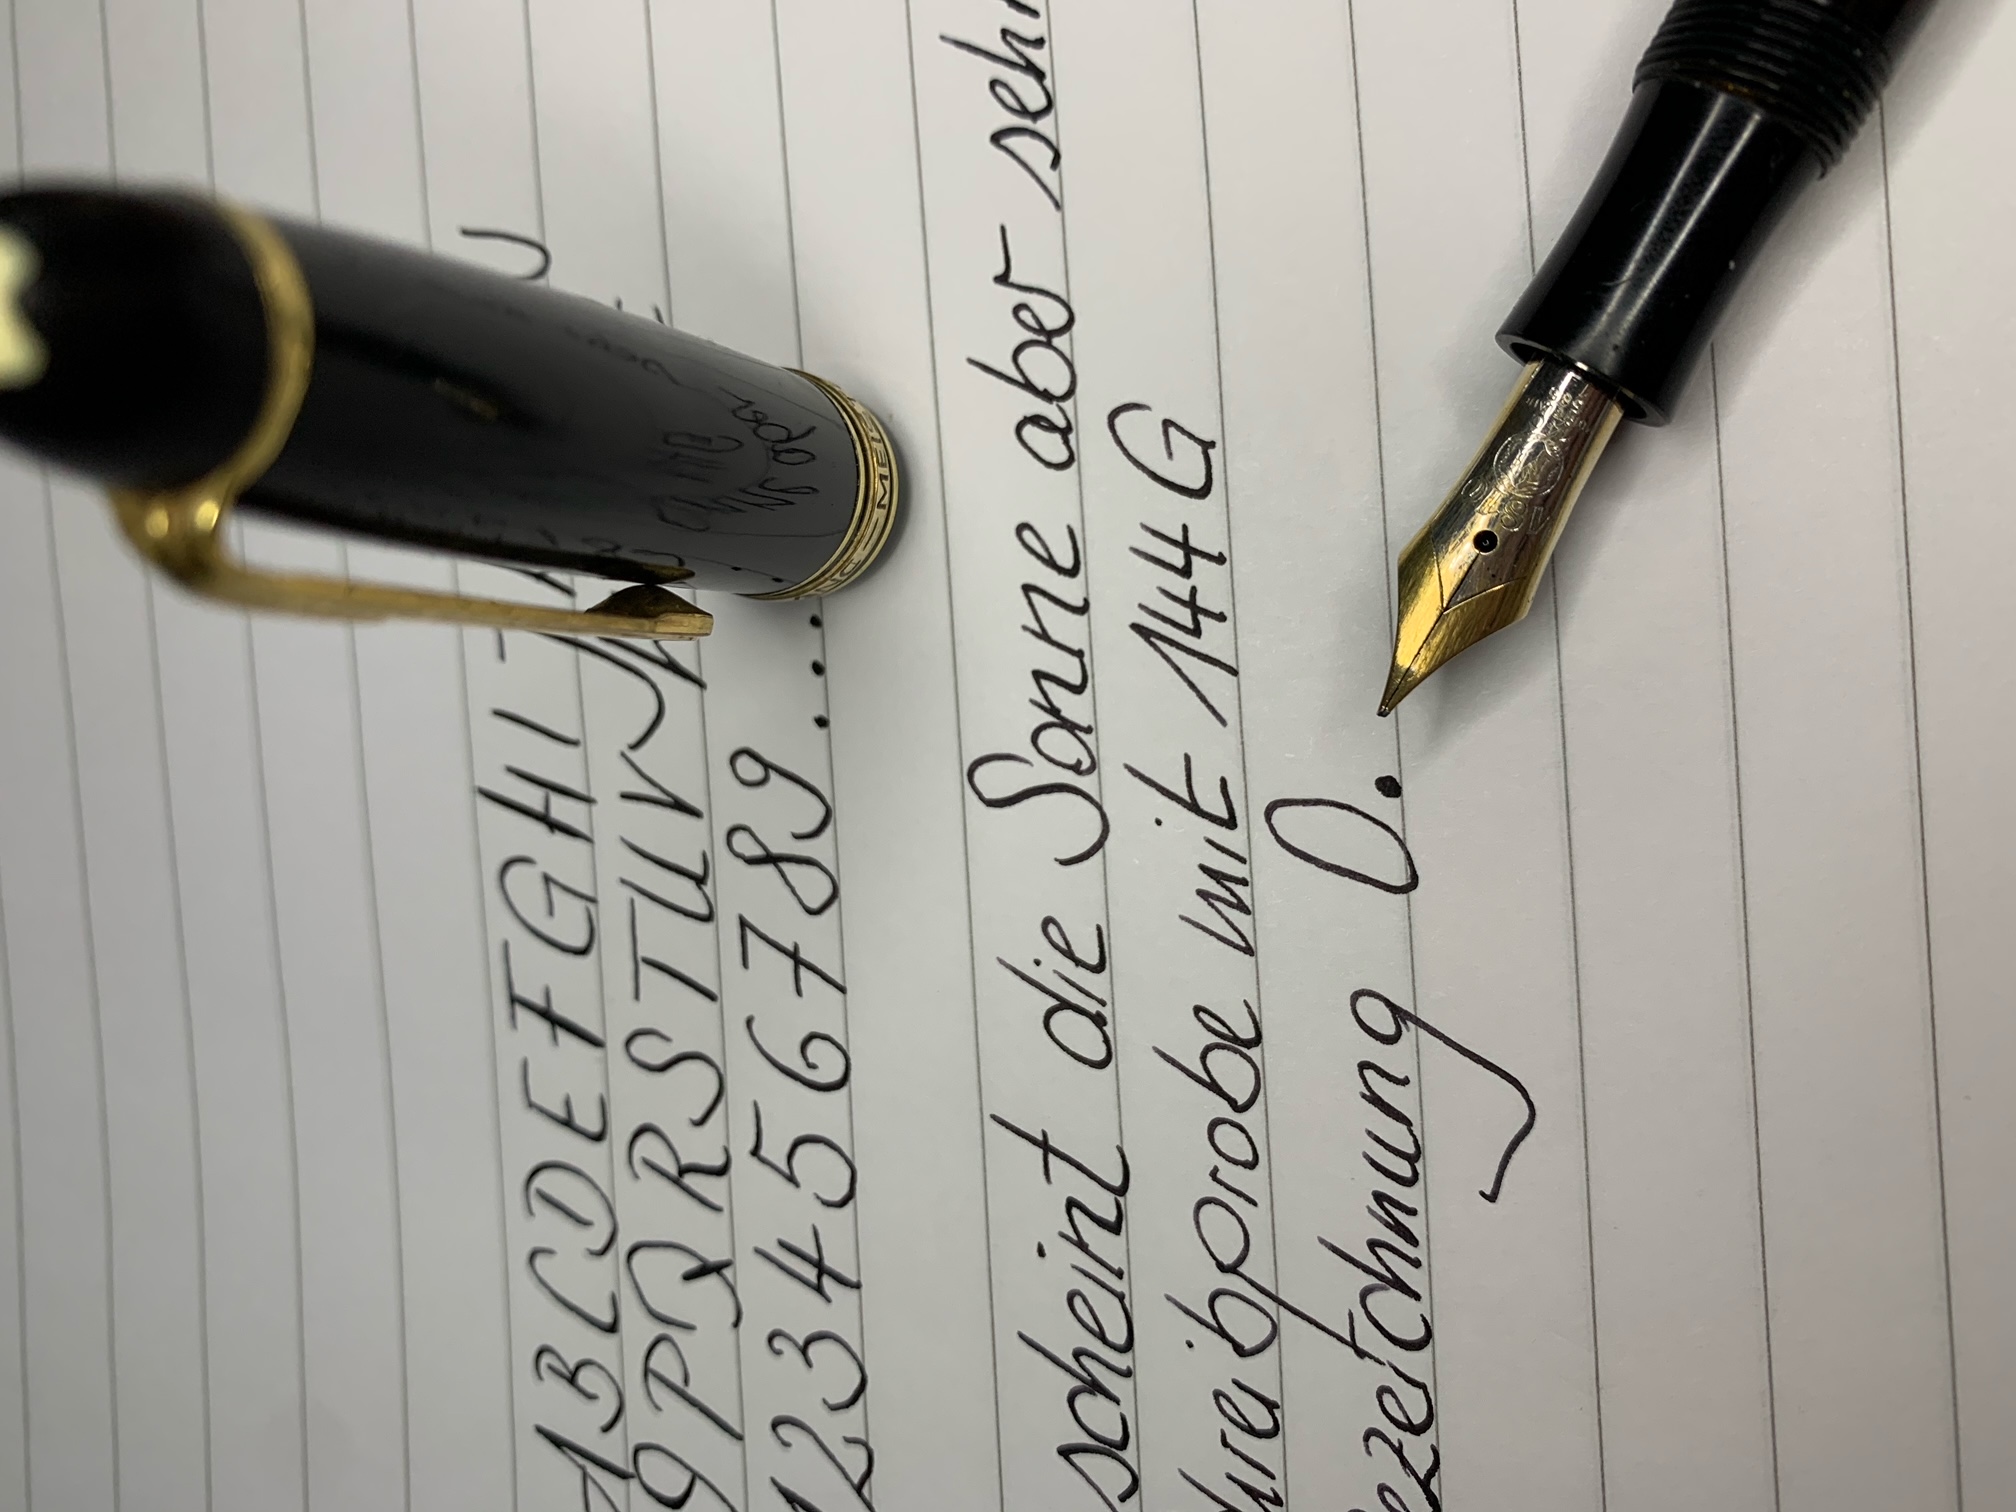 ABCDEFGHI
OPQRSTUVW
123456789...
scheint die Sonne aber sehr
hreibprobe mit 144 G
ezeichnung O.